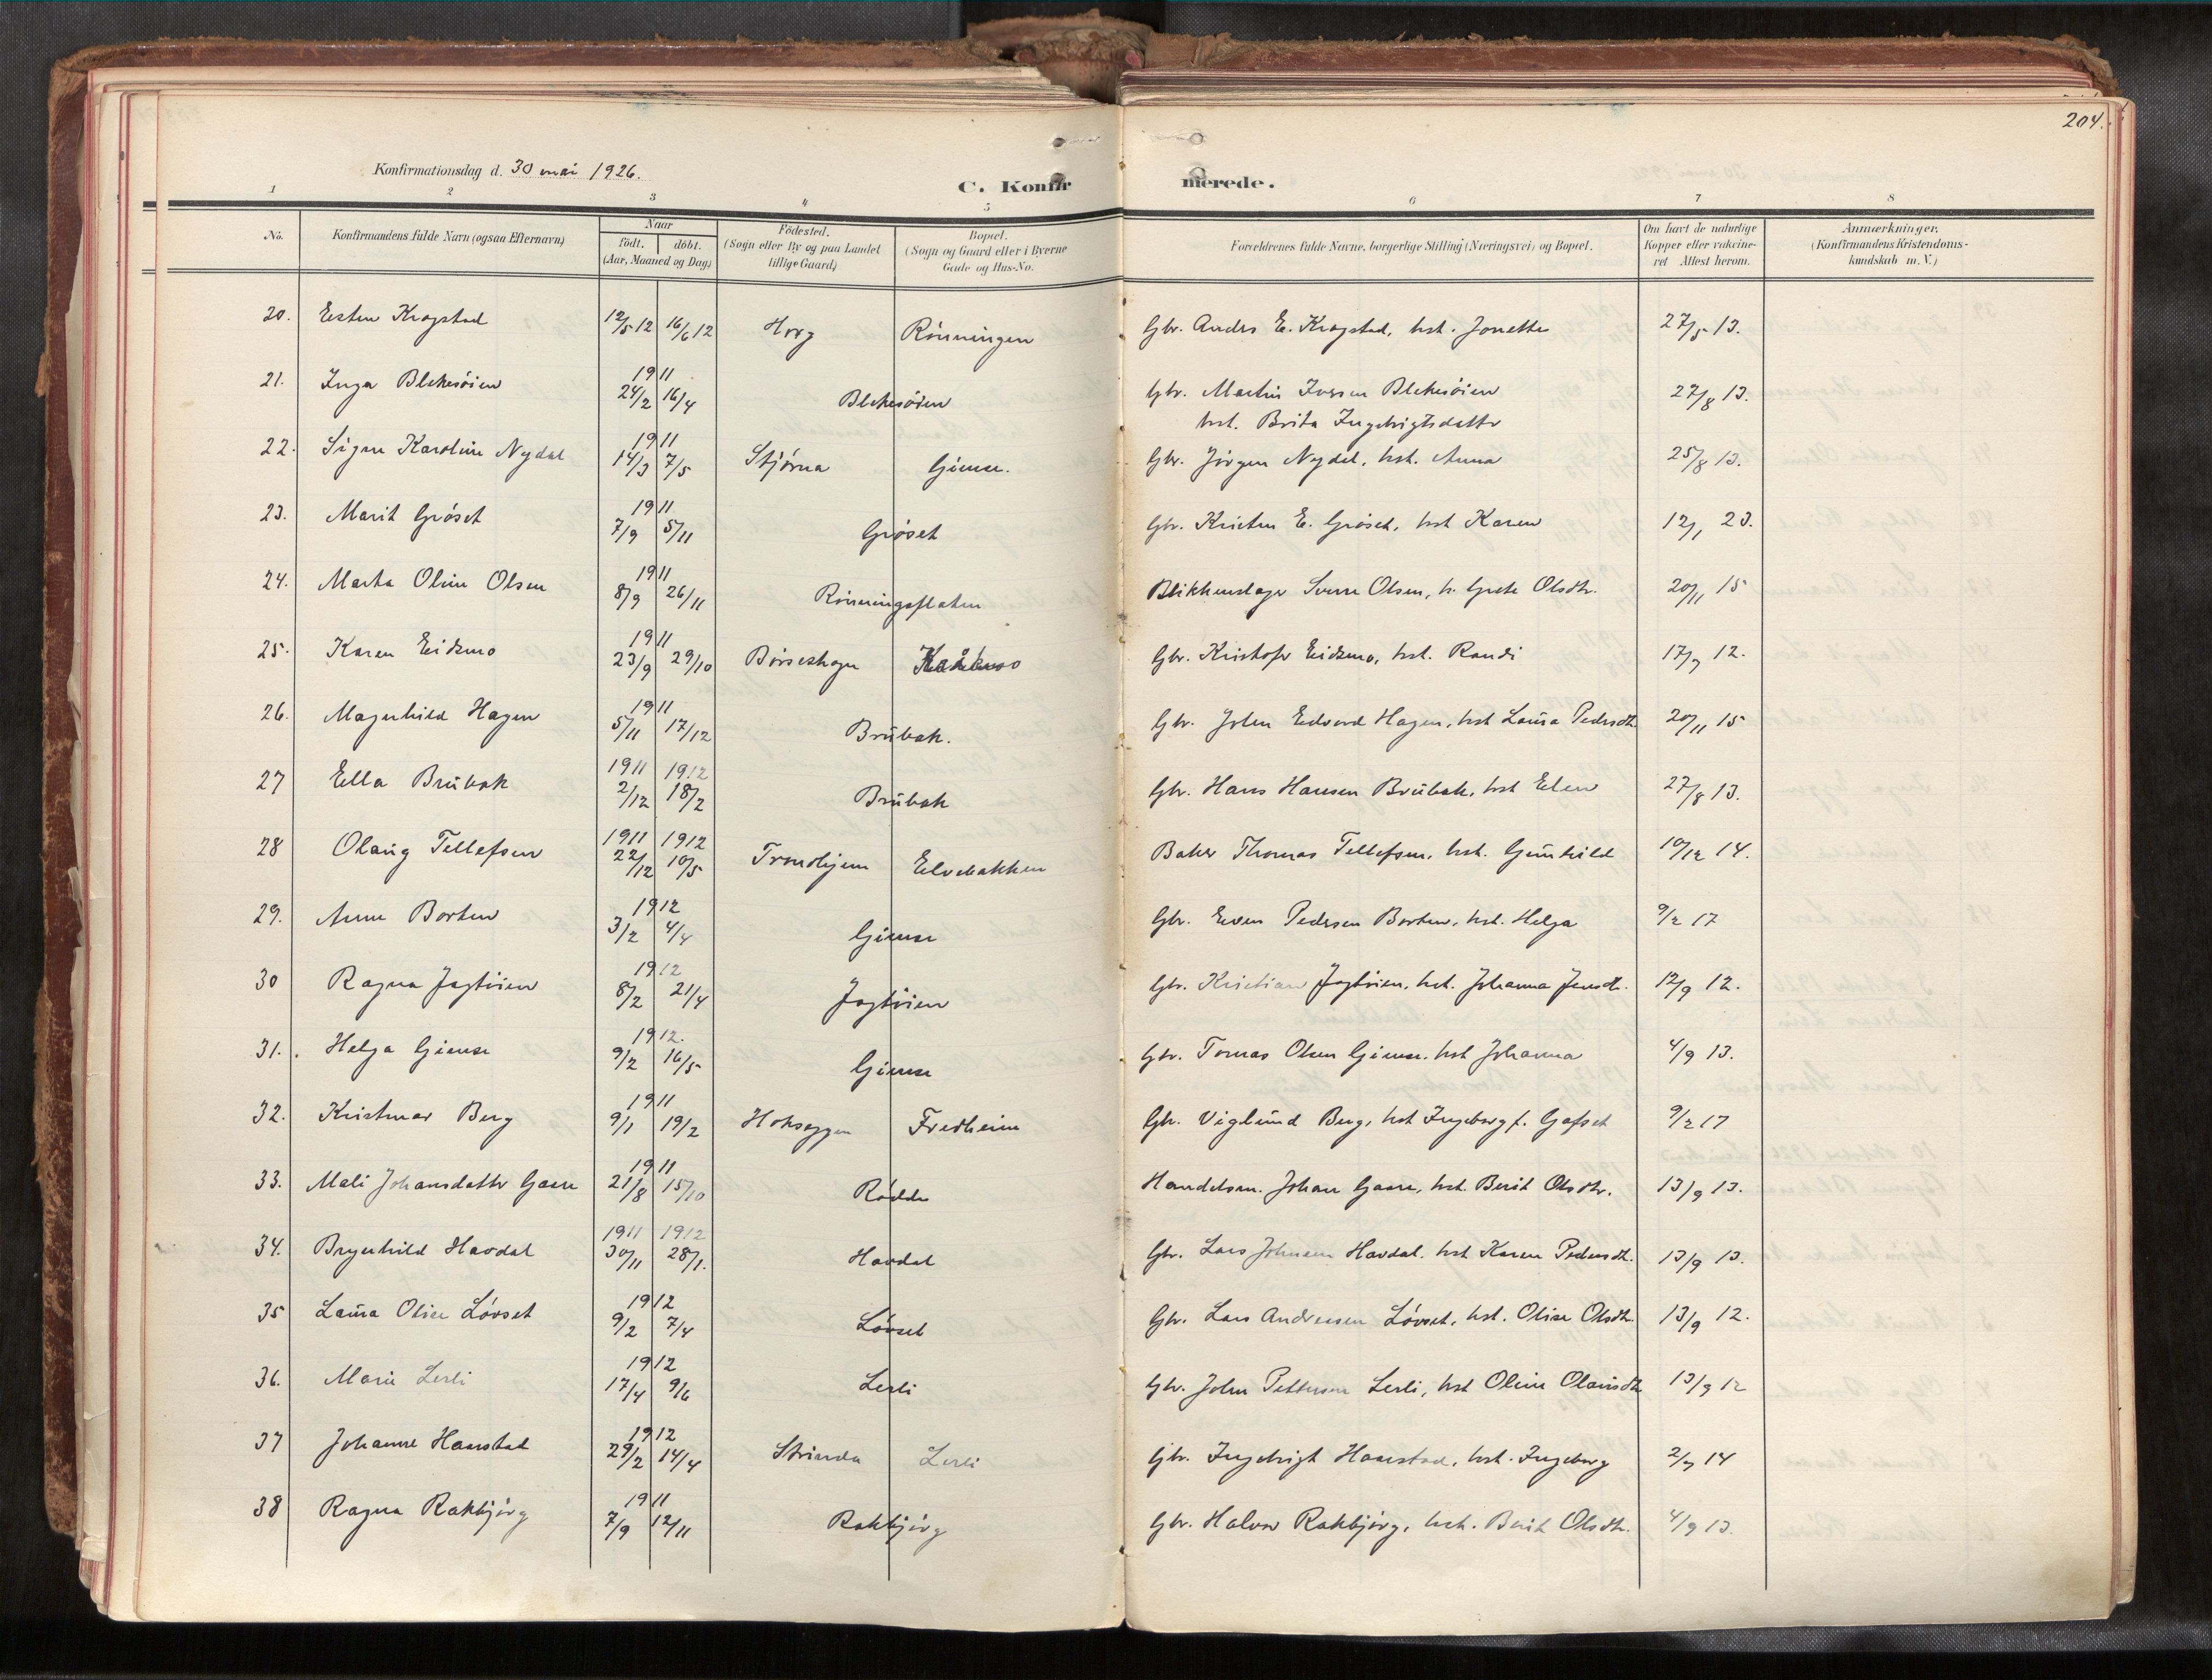 204.
Konfirmationsdag d. 30 mai 1926.
C. Konfirmerede.
1 2 3 4 5 6 7 8
No.
Konfirmandens fulde Navn (ogsaa Efternavn)
Naar
födt. döbt.
(Aar, Maaned og Dag)
Födested.
(Sogn eller By og paa Landet
tillige Gaard)
Bopæl.
(Sogn og Gaard eller i Byerne
Gade og Hus-No.
Forældrenes fulde Navne, borgerlige Stilling (Næringsvei) og Bopæl.
Om havt de naturlige
Kopper eller vakcine-
ret Attest herom.
Anmærkninger.
(Konfirmandens Kristendoms-
kundskab m. V.)
20. Esten Krogstad 12/5 12 16/6 12 Horg Rönningen Gbr. Anders E. Krogstad, hst. Jonette 27/5 13.
1911
21. Inga Blekesöien 24/2 16/4 Blekesöien Gbr. Martin Iversen Blekesöien 27/8 13.
hst. Brita Ingebrigtsdatter
1911
22. Signe Karoline Nydal 14/3 7/5 Stjörna Gimse. Gbr. Jörgen Nydal, hst. Anna 25/8 13.
1911
23. Marit Gröset 7/9 5/11 Gröset Gbr. Kristen E. Gröset, hst Karen 12/1 23.
1911
24. Marta Oline Olsen 8/9 26/11 Rönningsflaten Blikkenslager Sverre Olsen, h. Grete Olsdtr. 20/11 15
1911
25. Karen Eidsmo 23/9 29/10 Börseskogn Gbr. Kristofer Eidsmo, hst. Randi 17/7 12.
1911
26. Magnhild Hagen 5/11 17/12 Brubak. Gbr. John Edvard Hagen, hst Laura Pedersdtr 20/11 15
1911 1912
27 Ella Brubak 2/12 18/2 Brubak Gbr. Hans Hansen Brubak, hst Elen 27/8 13.
1911 1912
28 Olaug Tellefsen 22/12 10/5 Trondhjem Elvebakken Baker Thomas Tellefsen, hst. Gunhild 10/12 14.
1912
29. Anne Borten 3/2 4/4 Gimse Gbr. Even Pedersen Borten, hst. Helga 9/2 17
1912
30 Ragna Jagtöien 8/2 21/4 Jagtöien Gbr. Kristian Jagtöien, hst. Johanna Jensdt. 12/9 12.
1912.
31. Helga Gimse 9/2 16/5 Gimse Gbr. Tomas Olsen Gimse, hst Johanna 4/9 13.
1911
32. Kristmar Berg 9/1 19/2 Hokseggen Fredheim Gbr. Viglund Berg, hst Ingeborg f. Gafset 9/2 17
1911
33. Mali Johansdatter Gaare 21/8 15/10 Rödde Handelsm. Johan Gaare, hst. Berit Olsdtr. 13/9 13.
1911 1912
34. Brynhild Havdal 30/11 28/1. Havdal Gbr. Lars Johnsen Havdal. hst Karen Pedersdtr. 13/9 13.
1912
35 Laura Olise Lövset 9/2 7/4 Lövset Gbr. Lars Andreasen Lövset, hst. Olise Olsdtr. 13/9 12.
1912
36. Marie Lerli 17/4 9/6 Lerli Gbr. John Pettersen Lerli, hst Oline Olausdtr 13/9 12
1912
37 Johanne Haarstad 29/2 14/4 Strinda Lerli Gbr. Ingebrigt Haarstad, hst. Ingeborg 2/7 14
1911
38 Ragna Rakbjörg 7/9 12/11 Rakbjörg Gbr. Halvor Rakbjörg, hst. Berit Olsdtr. 4/9 13.